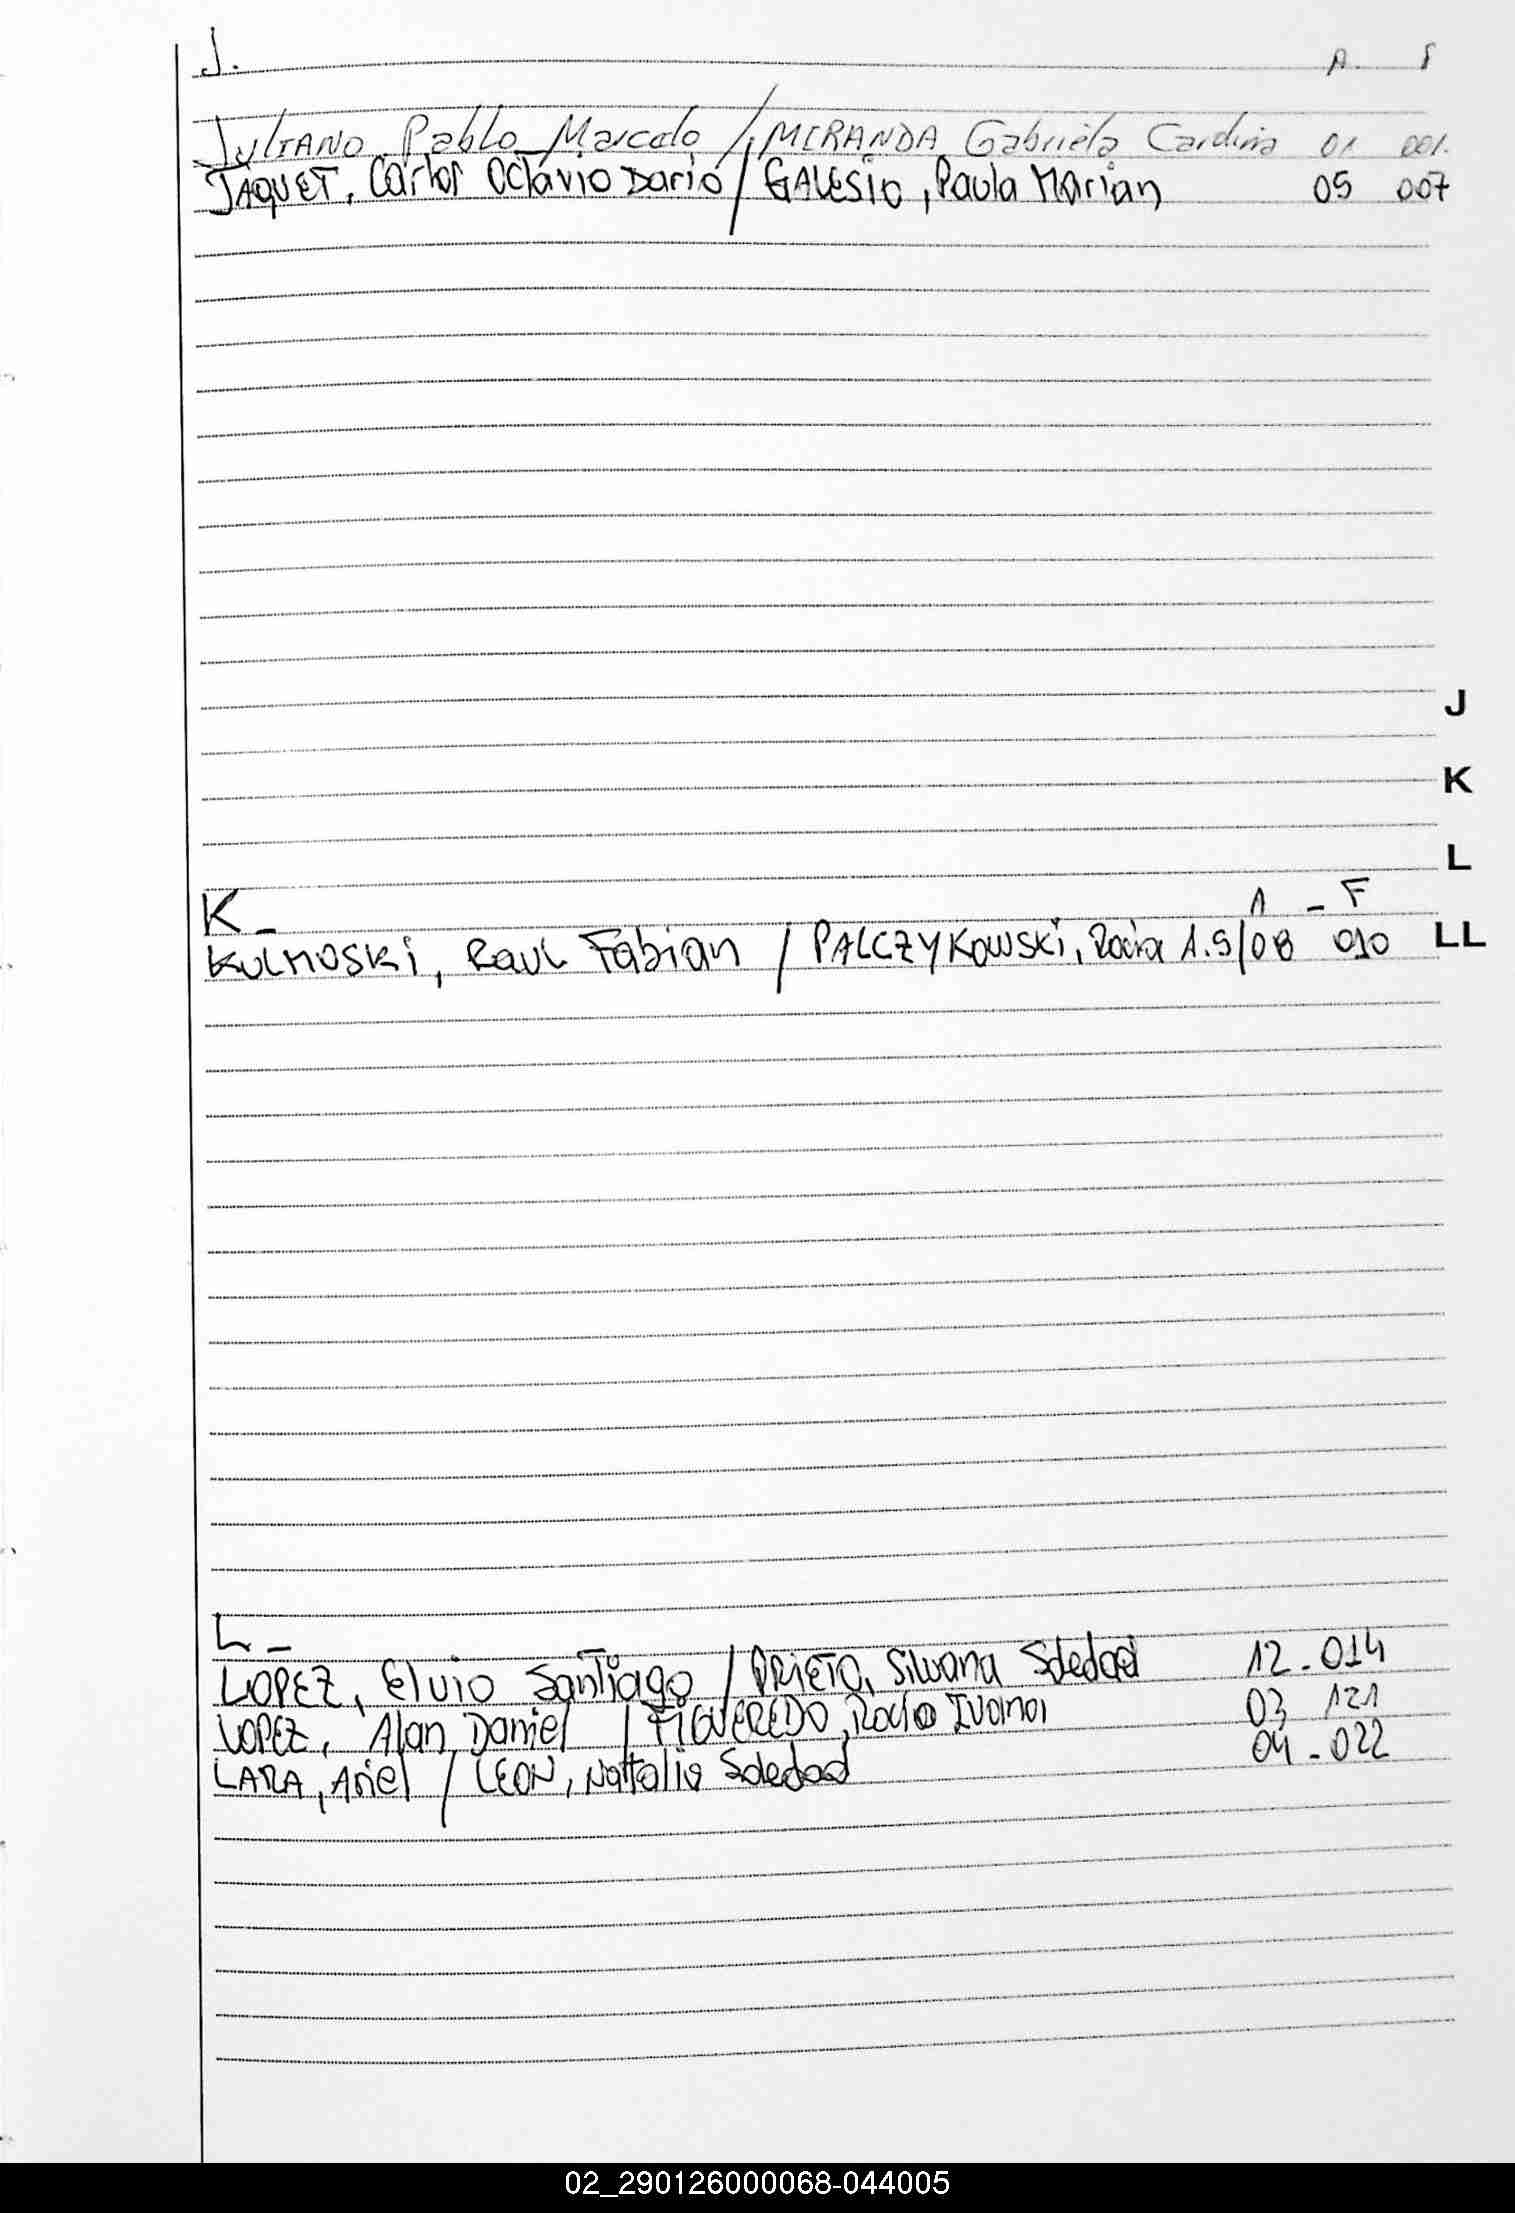 J. A. F
JULIANO Pablo Marcelo / MIRANDA Gabriela Carolina 01 001.
JAQUET, Carlos Octavio Dario / GALESIO, Paula Marian 05 007
J
K
L
K_ A - F
KULMOSKI, Raul Fabian / PALCZYKOWSKI, Rocio A.S/08 010
LL
L_
LOPEZ, Elvio Santiago / PRIETO, Silvana Soledad 12-014
LOPEZ, Alan Daniel / FIGUEREDO, Rocio Ivana 03 121
LARA, Ariel / LEON, Nattalia Soledad 04-022
02_290126000068-044005